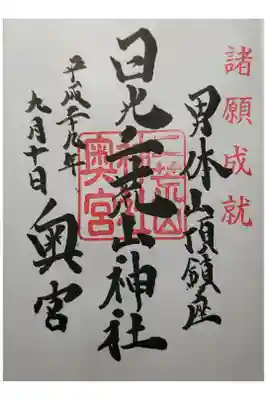 諸願成就
男体山頂鎮座
日光二荒山神社
奥宮
平成二十九年
九月十日
二荒山
神社
奥宮